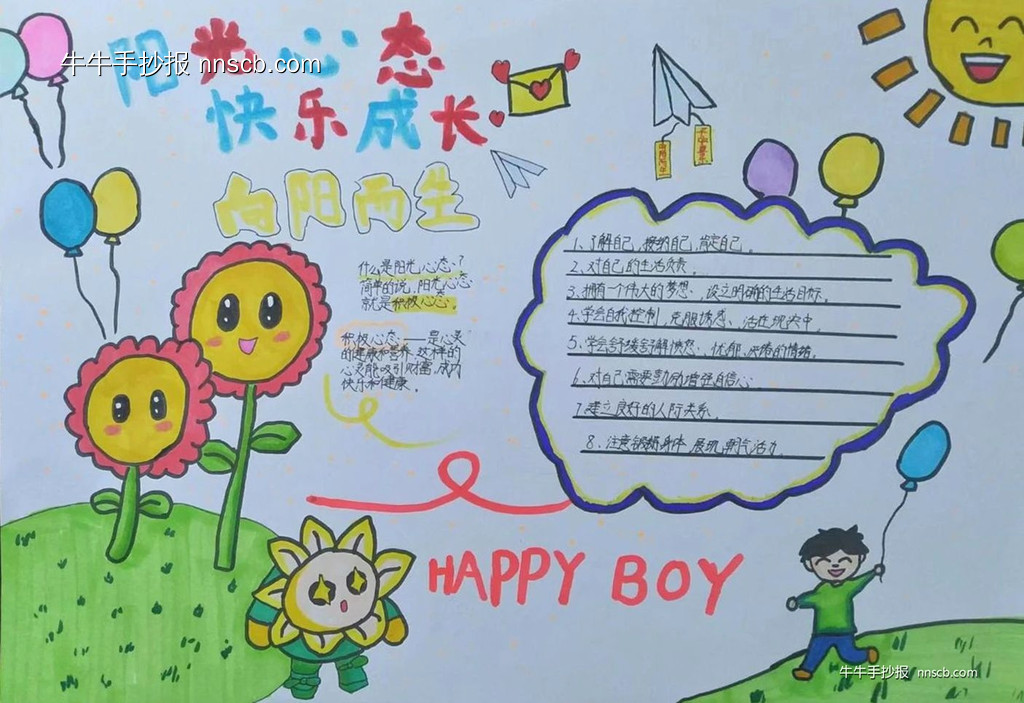 阳光心态
牛牛手抄报 nnscb.com
快乐成长
向阳而生
什么是阳光心态?
简单的说,阳光心态
就是积极心态。
积极心态——是心灵
的健康和营养.这样的
心灵能吸引财富,成功
快乐和健康。
1、了解自己,接纳自己,肯定自己。
2、对自己的生活负责。
3、拥有一个伟大的梦想、设立明确的生活目标。
4、学会自我控制,克服诱惑、活在现实中。
5、学会舒缓舒解愤怒、忧郁、厌倦的情绪。
6、对自己需要鼓励增强自信心
7、建立良好的人际关系。
8、注意锻炼身体,展现朝气活力。
HAPPY BOY
牛牛手抄报 nnscb.com